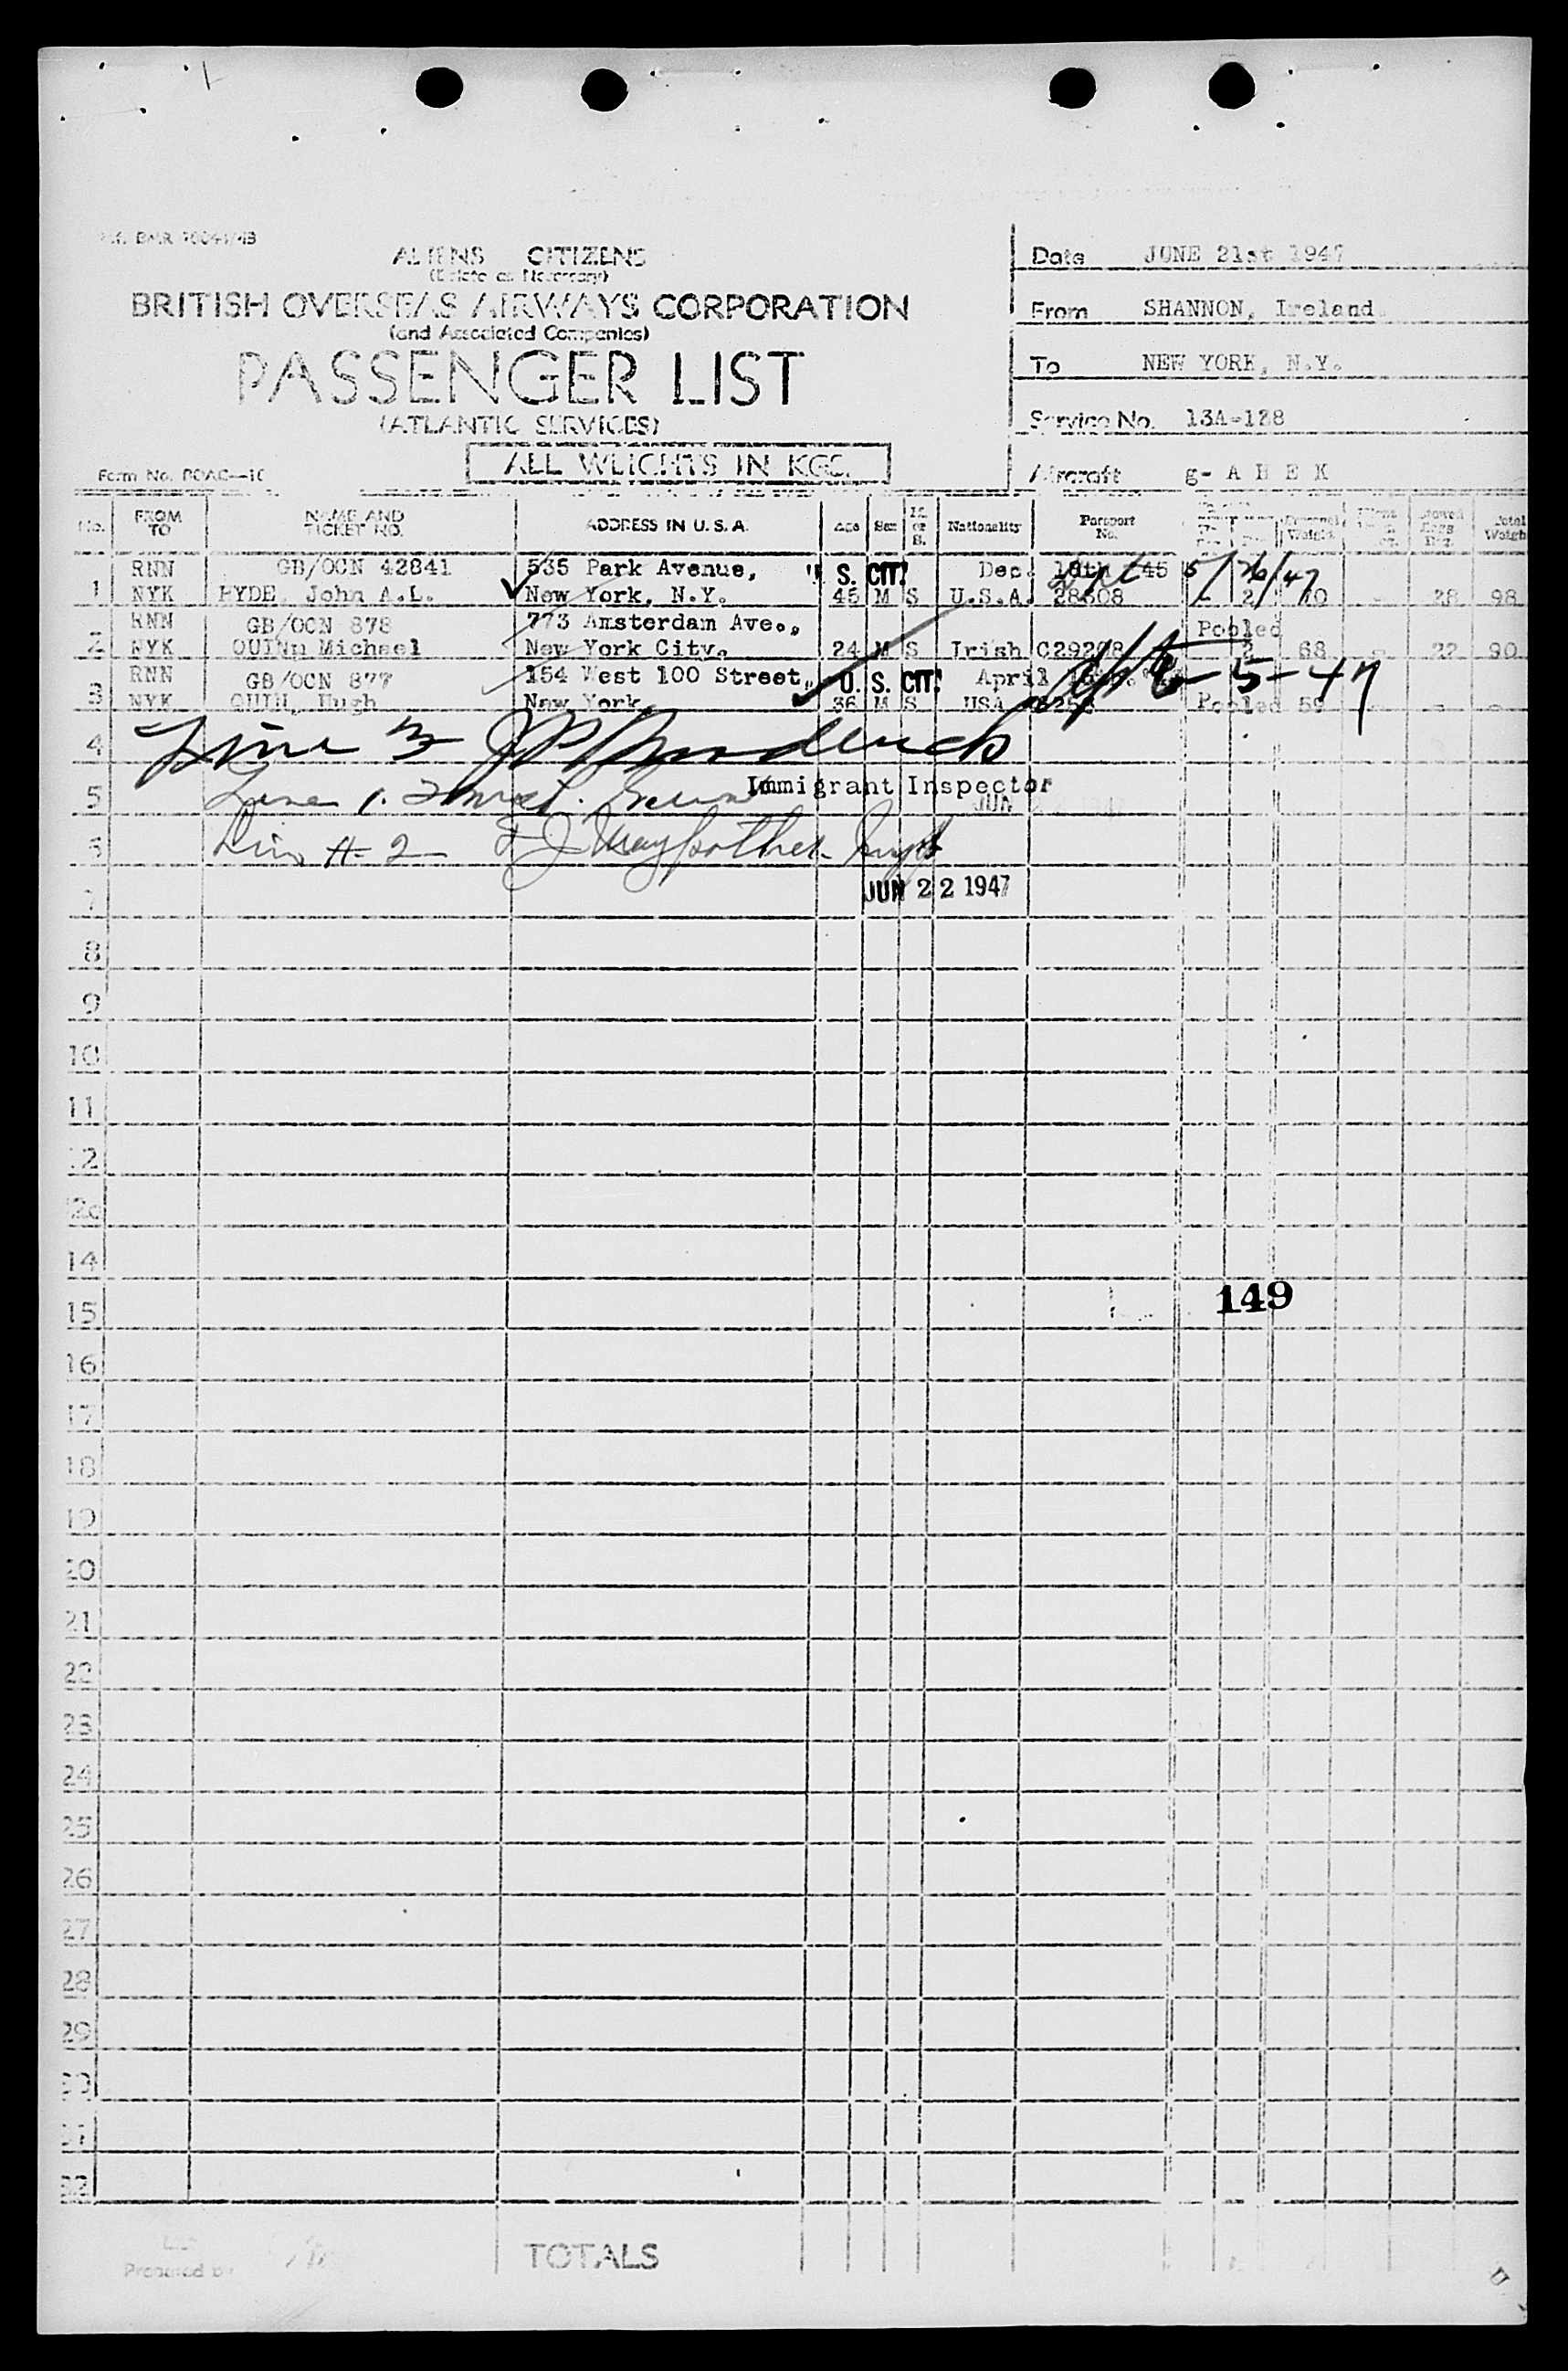 ALIENS CITIZENS
(Delete as Necessary)
BRITISH OVERSEAS AIRWAYS CORPORATION
(and Associated Companies)
PASSENGER LIST
(ATLANTIC SERVICES)
ALL WEIGHTS IN KGS.
Form No. BOAC—10
Date JUNE 21st 1947
From SHANNON, Ireland.
To NEW YORK, N.Y.
Service No. 13A-128
Aircraft g- A H E K
No. FROM TO NAME AND TICKET NO. ADDRESS IN U.S.A. Age Sex M. or S. Nationality Passport No. Personal Weight Total Weigh
RNN GB/OCN 42841 535 Park Avenue, U. S. CIT. Dec. 18th 45 5/26/47
1 NYK HYDE, John A.L. New York, N.Y. 45 M S U.S.A. 28608 - 2 70 - 28 98
RNN GB/OCN 878 773 Amsterdam Ave., Pooled
2 NYK QUINN Michael New York City. 24 M S Irish 2 68 - 22 90
RNN GB/OCN 877 154 West 100 Street, U. S. CIT. April 5-47
3 NYK QUIN, Hugh New York, 36 M S USA Pooled 59 - - -
4 Line 3
Immigrant Inspector
5 Line 1.
6 Line # 2
7 JUN 22 1947
8
9
10
11
12
14
15 149
16
17
18
19
20
21
22
23
24
25
26
27
28
29
Prepared by TOTALS